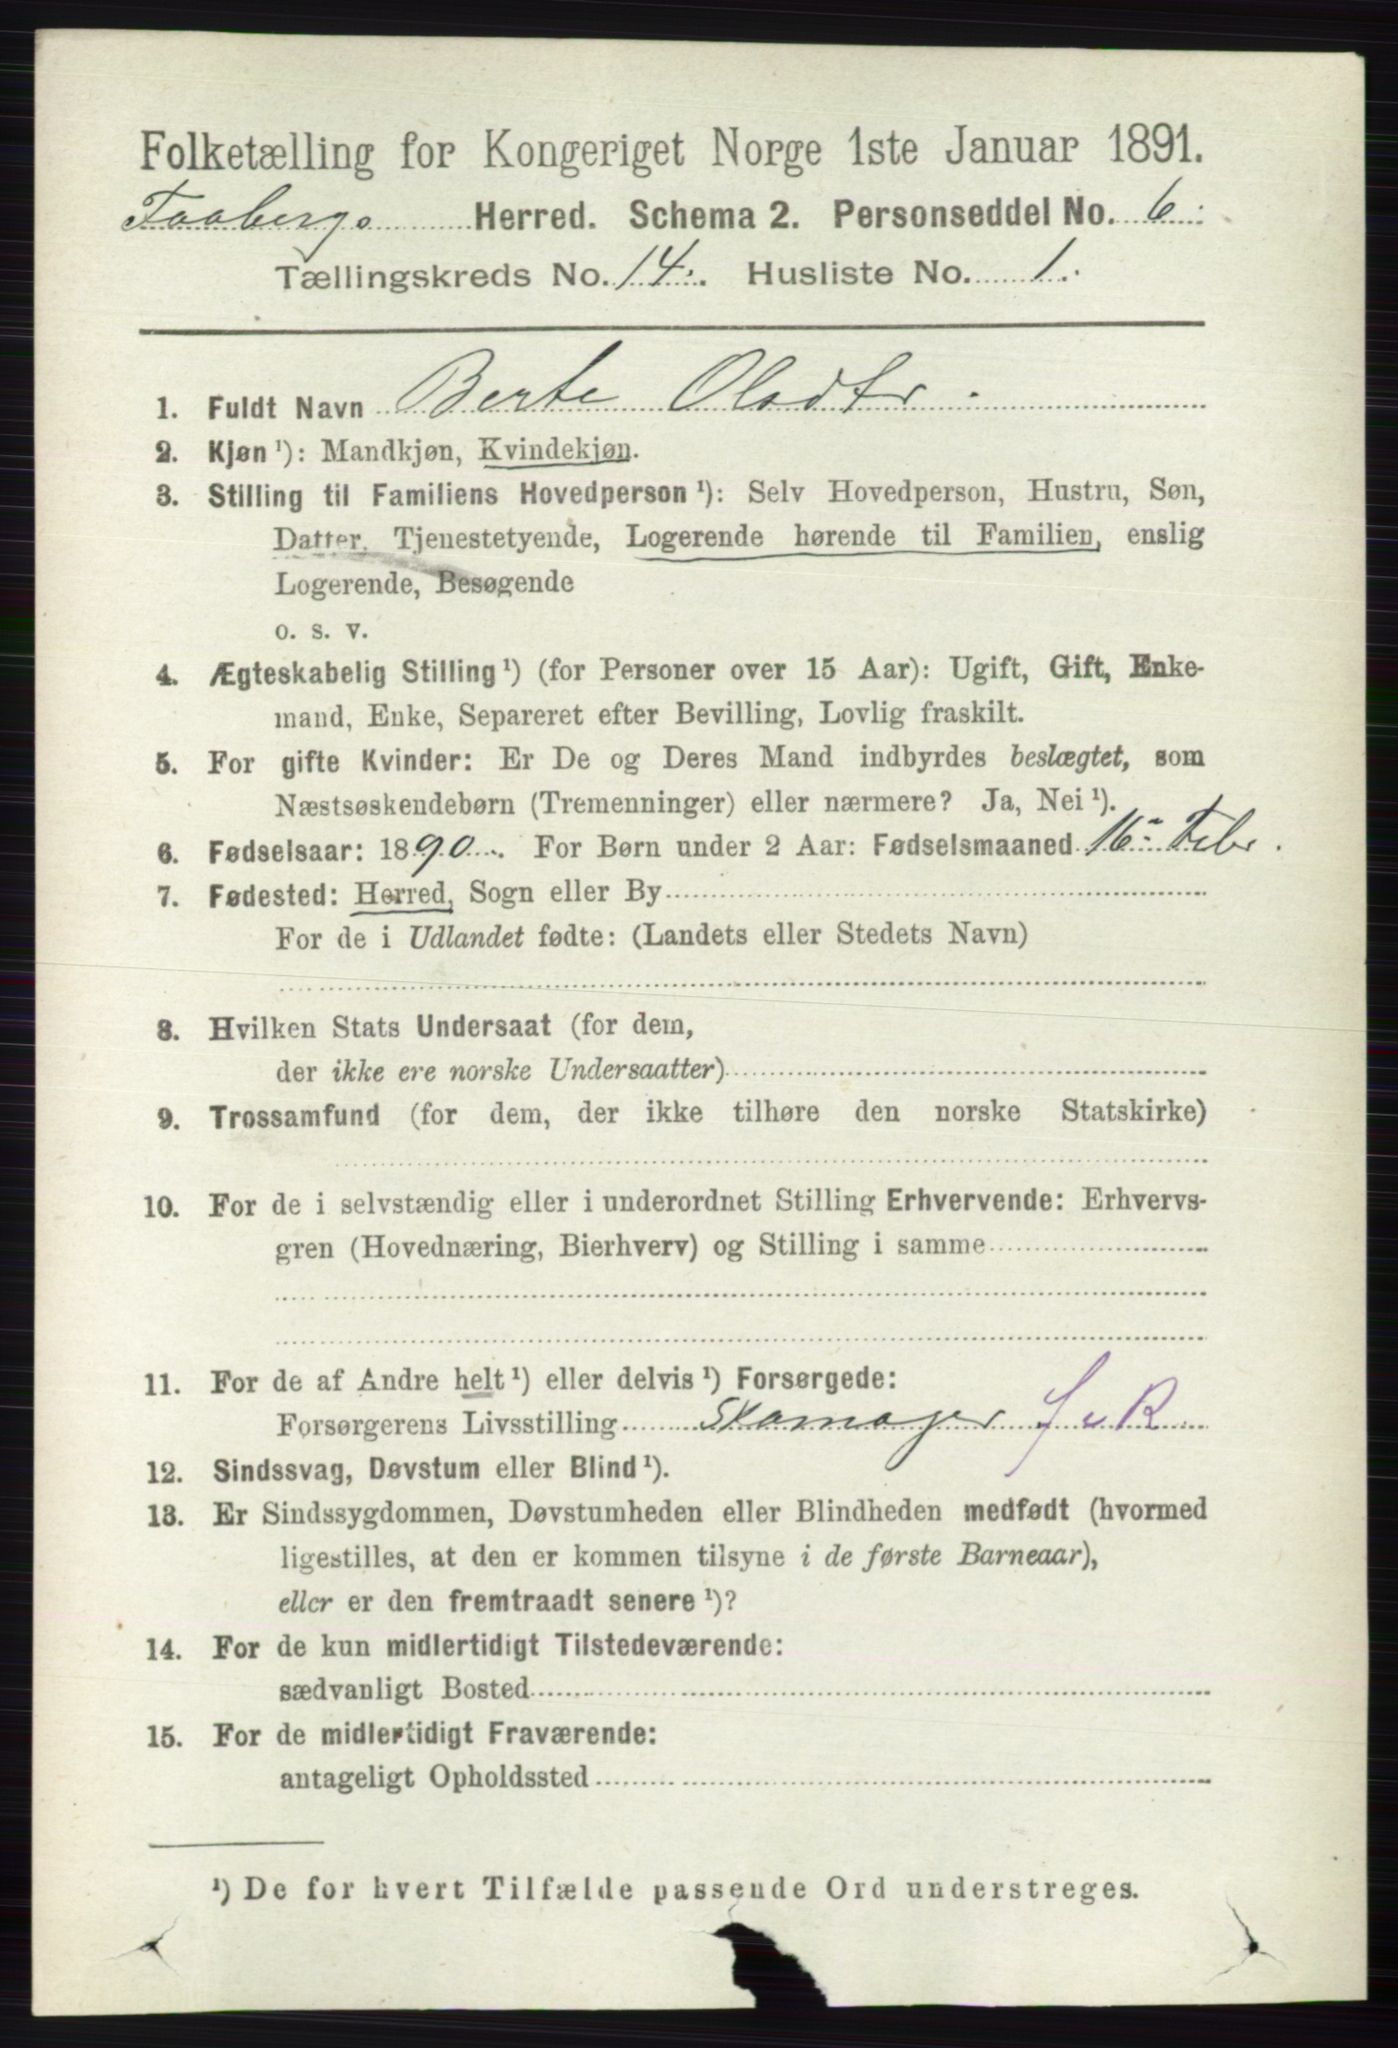 Folketælling for Kongeriget Norge 1ste Januar 1891.
Faabergs Herred. Schema 2. Personseddel No. 6.
Tællingskreds No. 14. Husliste No. 1.
1. Fuldt Navn Berte Olsdtr.
2. Kjøn ¹): Mandkjøn, Kvindekjøn.
3. Stilling til Familiens Hovedperson ¹): Selv Hovedperson, Hustru, Søn,
Datter, Tjenestetyende, Logerende hørende til Familien, enslig
Logerende, Besøgende
o. s. v.
4. Ægteskabelig Stilling ¹) (for Personer over 15 Aar): Ugift, Gift, Enke-
mand, Enke, Separeret efter Bevilling, Lovlig fraskilt.
5. For gifte Kvinder: Er De og Deres Mand indbyrdes beslægtet, som
Næstsøskendebørn (Tremenninger) eller nærmere? Ja, Nei ¹).
6. Fødselsaar: 1890. For Børn under 2 Aar: Fødselsmaaned 16- Febr.
7. Fødested: Herred, Sogn eller By
For de i Udlandet fødte: (Landets eller Stedets Navn)
8. Hvilken Stats Undersaat (for dem,
der ikke ere norske Undersaatter)
9. Trossamfund (for dem, der ikke tilhøre den norske Statskirke)
10. For de i selvstændig eller i underordnet Stilling Erhvervende: Erhvervs-
gren (Hovednæring, Bierhverv) og Stilling i samme
11. For de af Andre helt ¹) eller delvis ¹) Forsørgede:
Forsørgerens Livsstilling Skomager
12. Sindssvag, Døvstum eller Blind ¹).
13. Er Sindssygdommen, Døvstumheden eller Blindheden medfødt (hvormed
ligestilles, at den er kommen tilsyne i de første Barneaar),
eller er den fremtraadt senere ¹)?
14. For de kun midlertidigt Tilstedeværende:
sædvanligt Bosted
15. For de midlertidigt Fraværende:
antageligt Opholdssted
¹) De for hvert Tilfælde passende Ord understreges.